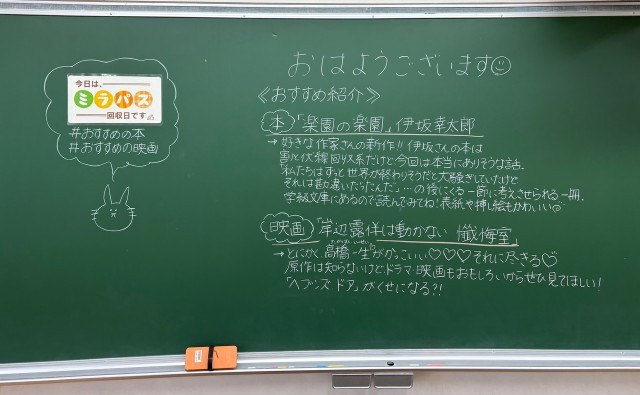 今日は、
ミラパス
回収日です
#おすすめの本
#おすすめの映画
おはようございます
≪おすすめ紹介≫
本 「楽園の楽園」伊坂幸太郎
→好きな作家さんの新作!! 伊坂さんの本は
伏線回収系だけど今回は本当にありそうな話。
「私たちはずっと世界が終わりそうだと大騒ぎしていたけど
それは勘違いだったんだ」…の後にくる一節に考えさせられる一冊。
学級文庫にあるので読んでみてね!表紙や挿し絵もかわいい
映画 「岸辺露伴は動かない 懺悔室」
→とにかく、高橋一生がかっこいい♡♡♡それに尽きる♡
原作は知らないけど、ドラマ・映画もおもしろいからぜひ見てほしい!
「ヘブンズドア」がくせになる?!